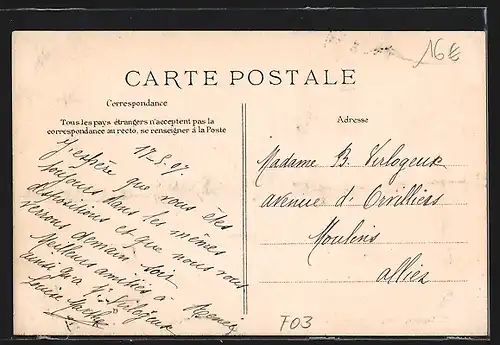 16€
CARTE POSTALE
Correspondance
Tous les pays étrangers n'acceptent pas la
correspondance au recto, se renseigner à la Poste
17-5-07
J'espère que vous êtes
toujours dans les mêmes
dispositions et que nous nous
verrons demain soir
Meilleurs amitiés à
ainsi qu'à
Louise
Adresse
Madame B. Verlogeux
avenue d'Orvilliers
Moulins
Allier
F03